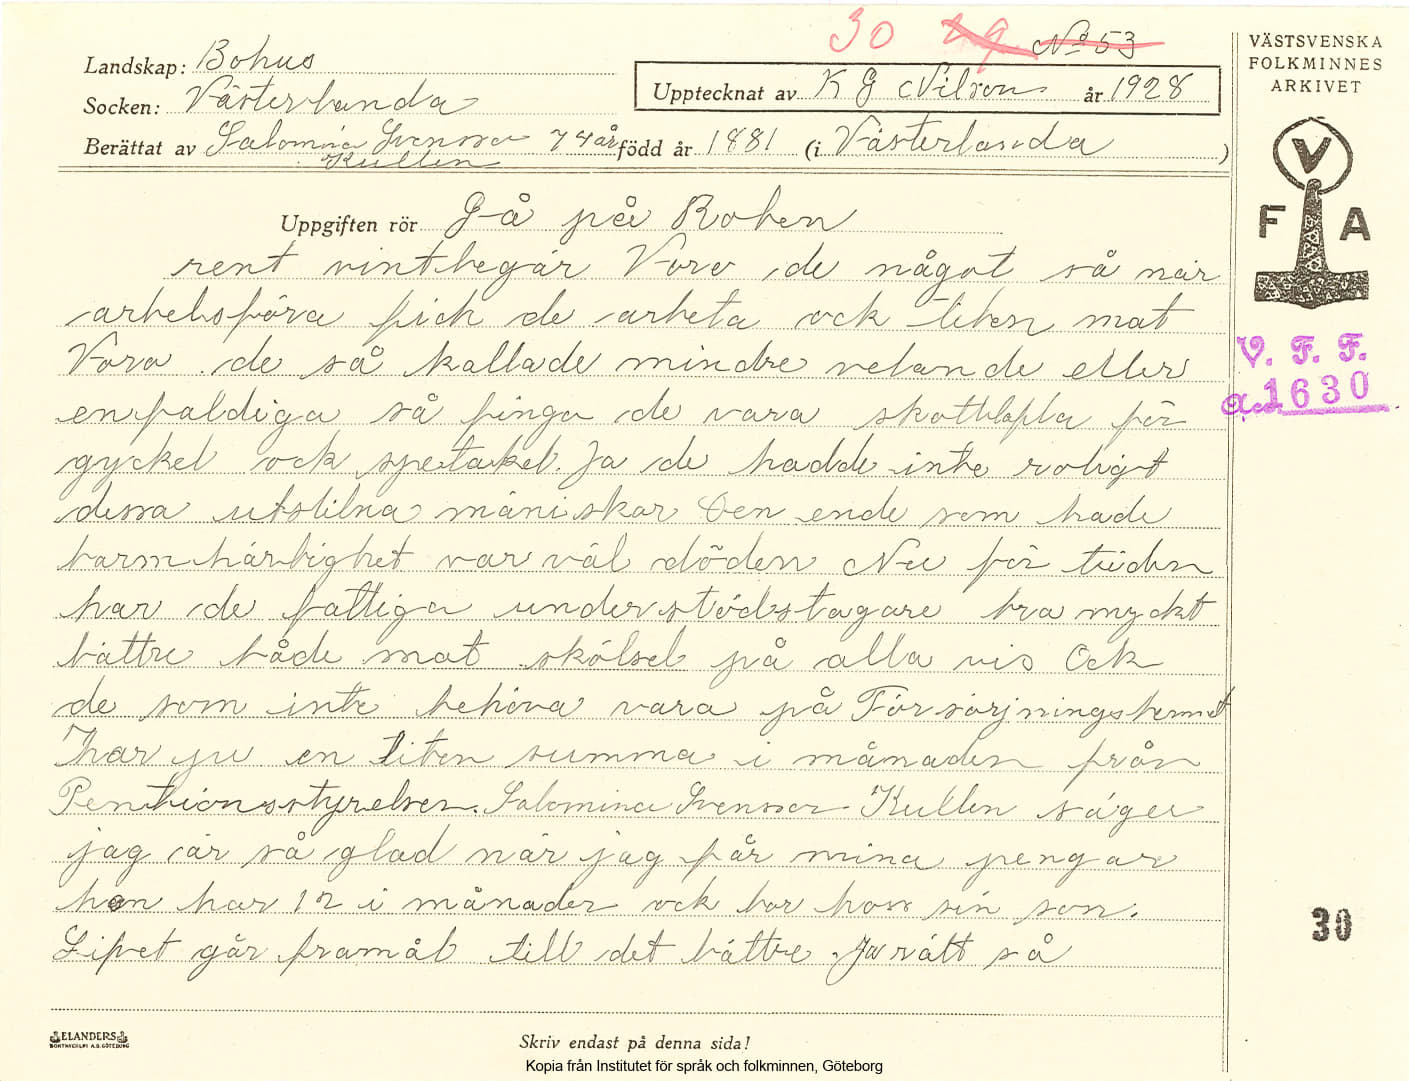 30 29 No 53
VÄSTSVENSKA
FOLKMINNES
ARKIVET
Landskap: Bohus
Upptecknat av K G Nilson år 1928
Socken: Västerlanda
Berättat av Salomina Svensson 74 år född år 1881 (i Västerlanda )
Kullen
V
F A
Uppgiften rör Gå på Roten
rent vintbegär Voro de något så när
arbetsföra fick de arbeta ock liten mat
Voro de så kallade mindre vetande eller
enfaldiga så finga de vara skottafla för
gyckel ock spetakel. Ja de hadde inte roligt
dessa utstilna mäniskor Den ende som hade
barmhärtighet var väl döden Nu för tiden
har de fattiga understödstagare bra myckt
bättre både mat skölsel på alla vis Ock
de som inte behöva vara på Försörjningshemmet
har ju en liten summa i månaden från
Pentionsstyrelsen. Salomina Svensson Kullen säger
jag är så glad när jag får mina pengar
hon har 12 i månader ock bor hos sin son.
Lifvet går framåt till det bättre. Ja rätt så
V. F. F.
acc. 1630
30
ELANDERS
BOKTRYCKERI A.B. GÖTEBORG
Skriv endast på denna sida!
Kopia från Institutet för språk och folkminnen, Göteborg